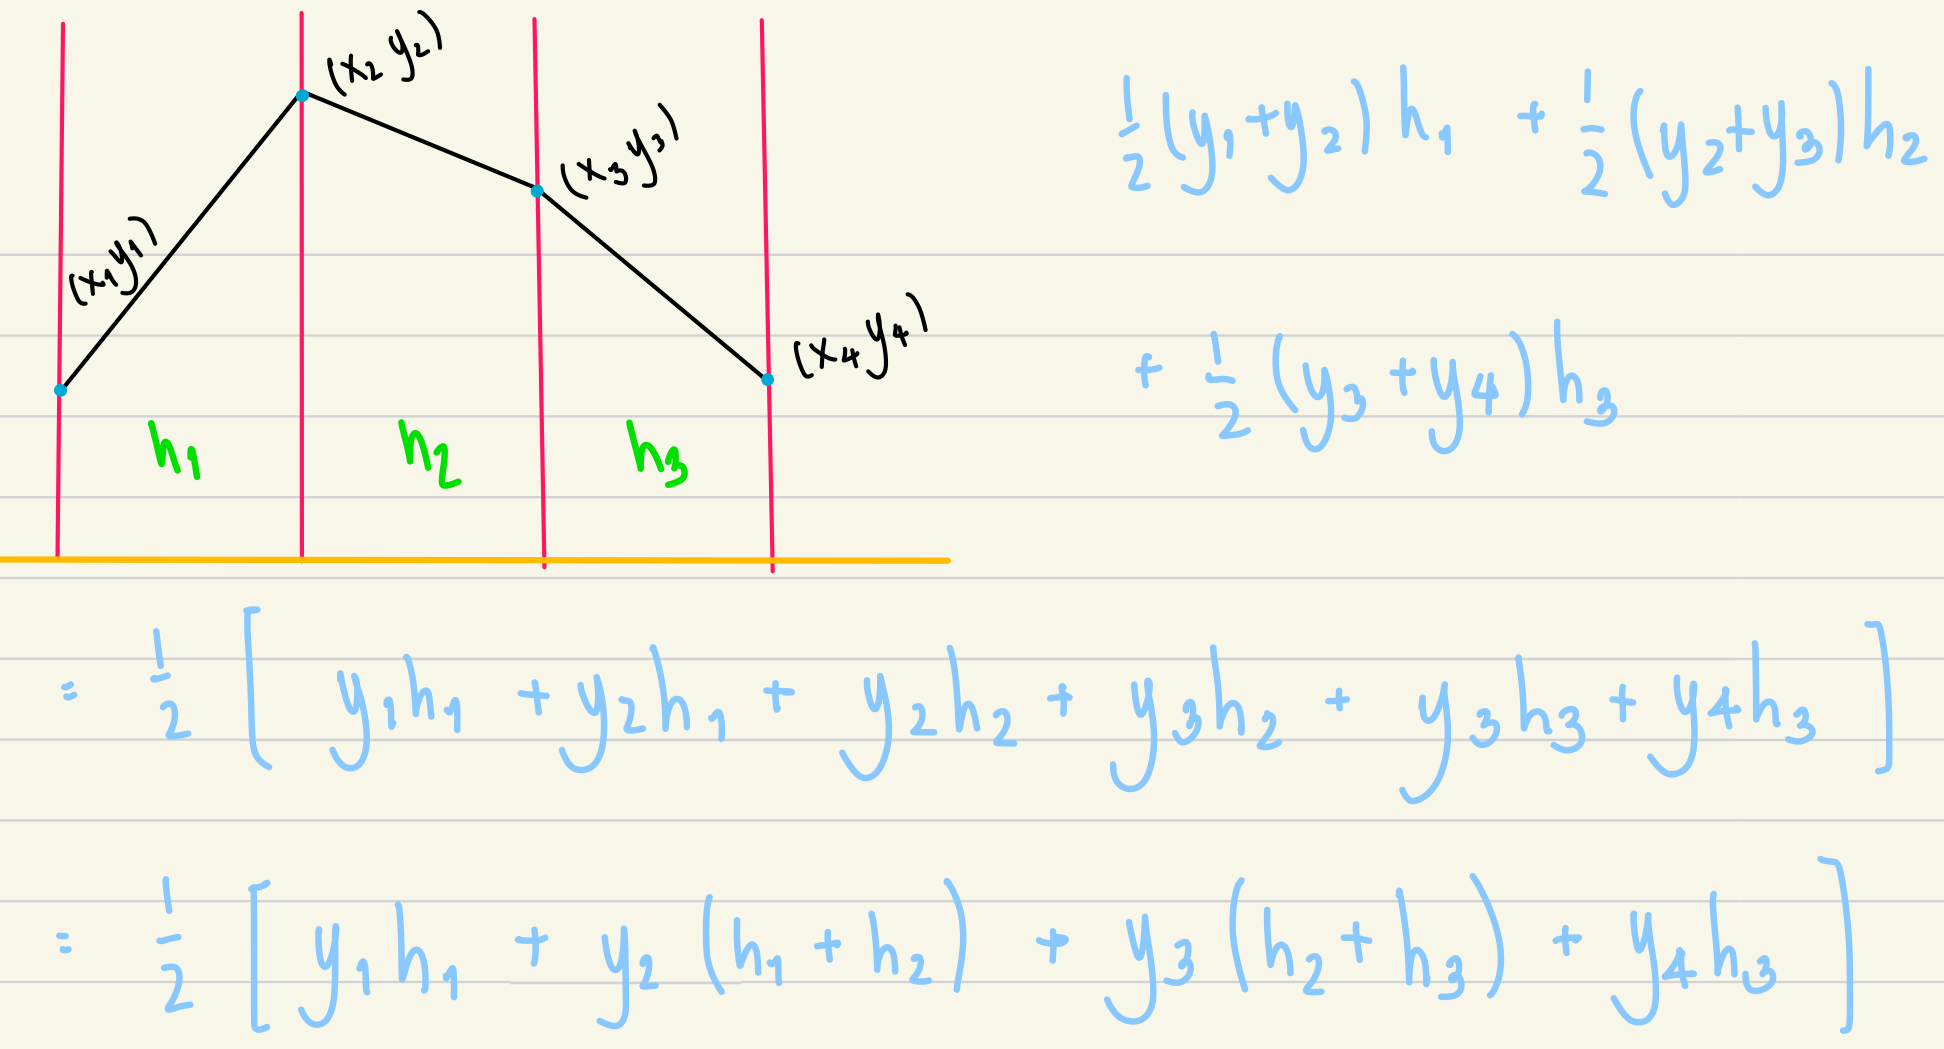 (x₂ y₂)
(x₃ y₃)
(x₁ y₁)
(x₄ y₄)
h₁ h₂ h₃
½ (y₁ + y₂) h₁ + ½ (y₂ + y₃) h₂
+ ½ (y₃ + y₄) h₃
= ½ [ y₁h₁ + y₂h₁ + y₂h₂ + y₃h₂ + y₃h₃ + y₄h₃ ]
= ½ [ y₁h₁ + y₂ (h₁ + h₂) + y₃ (h₂ + h₃) + y₄h₃ ]